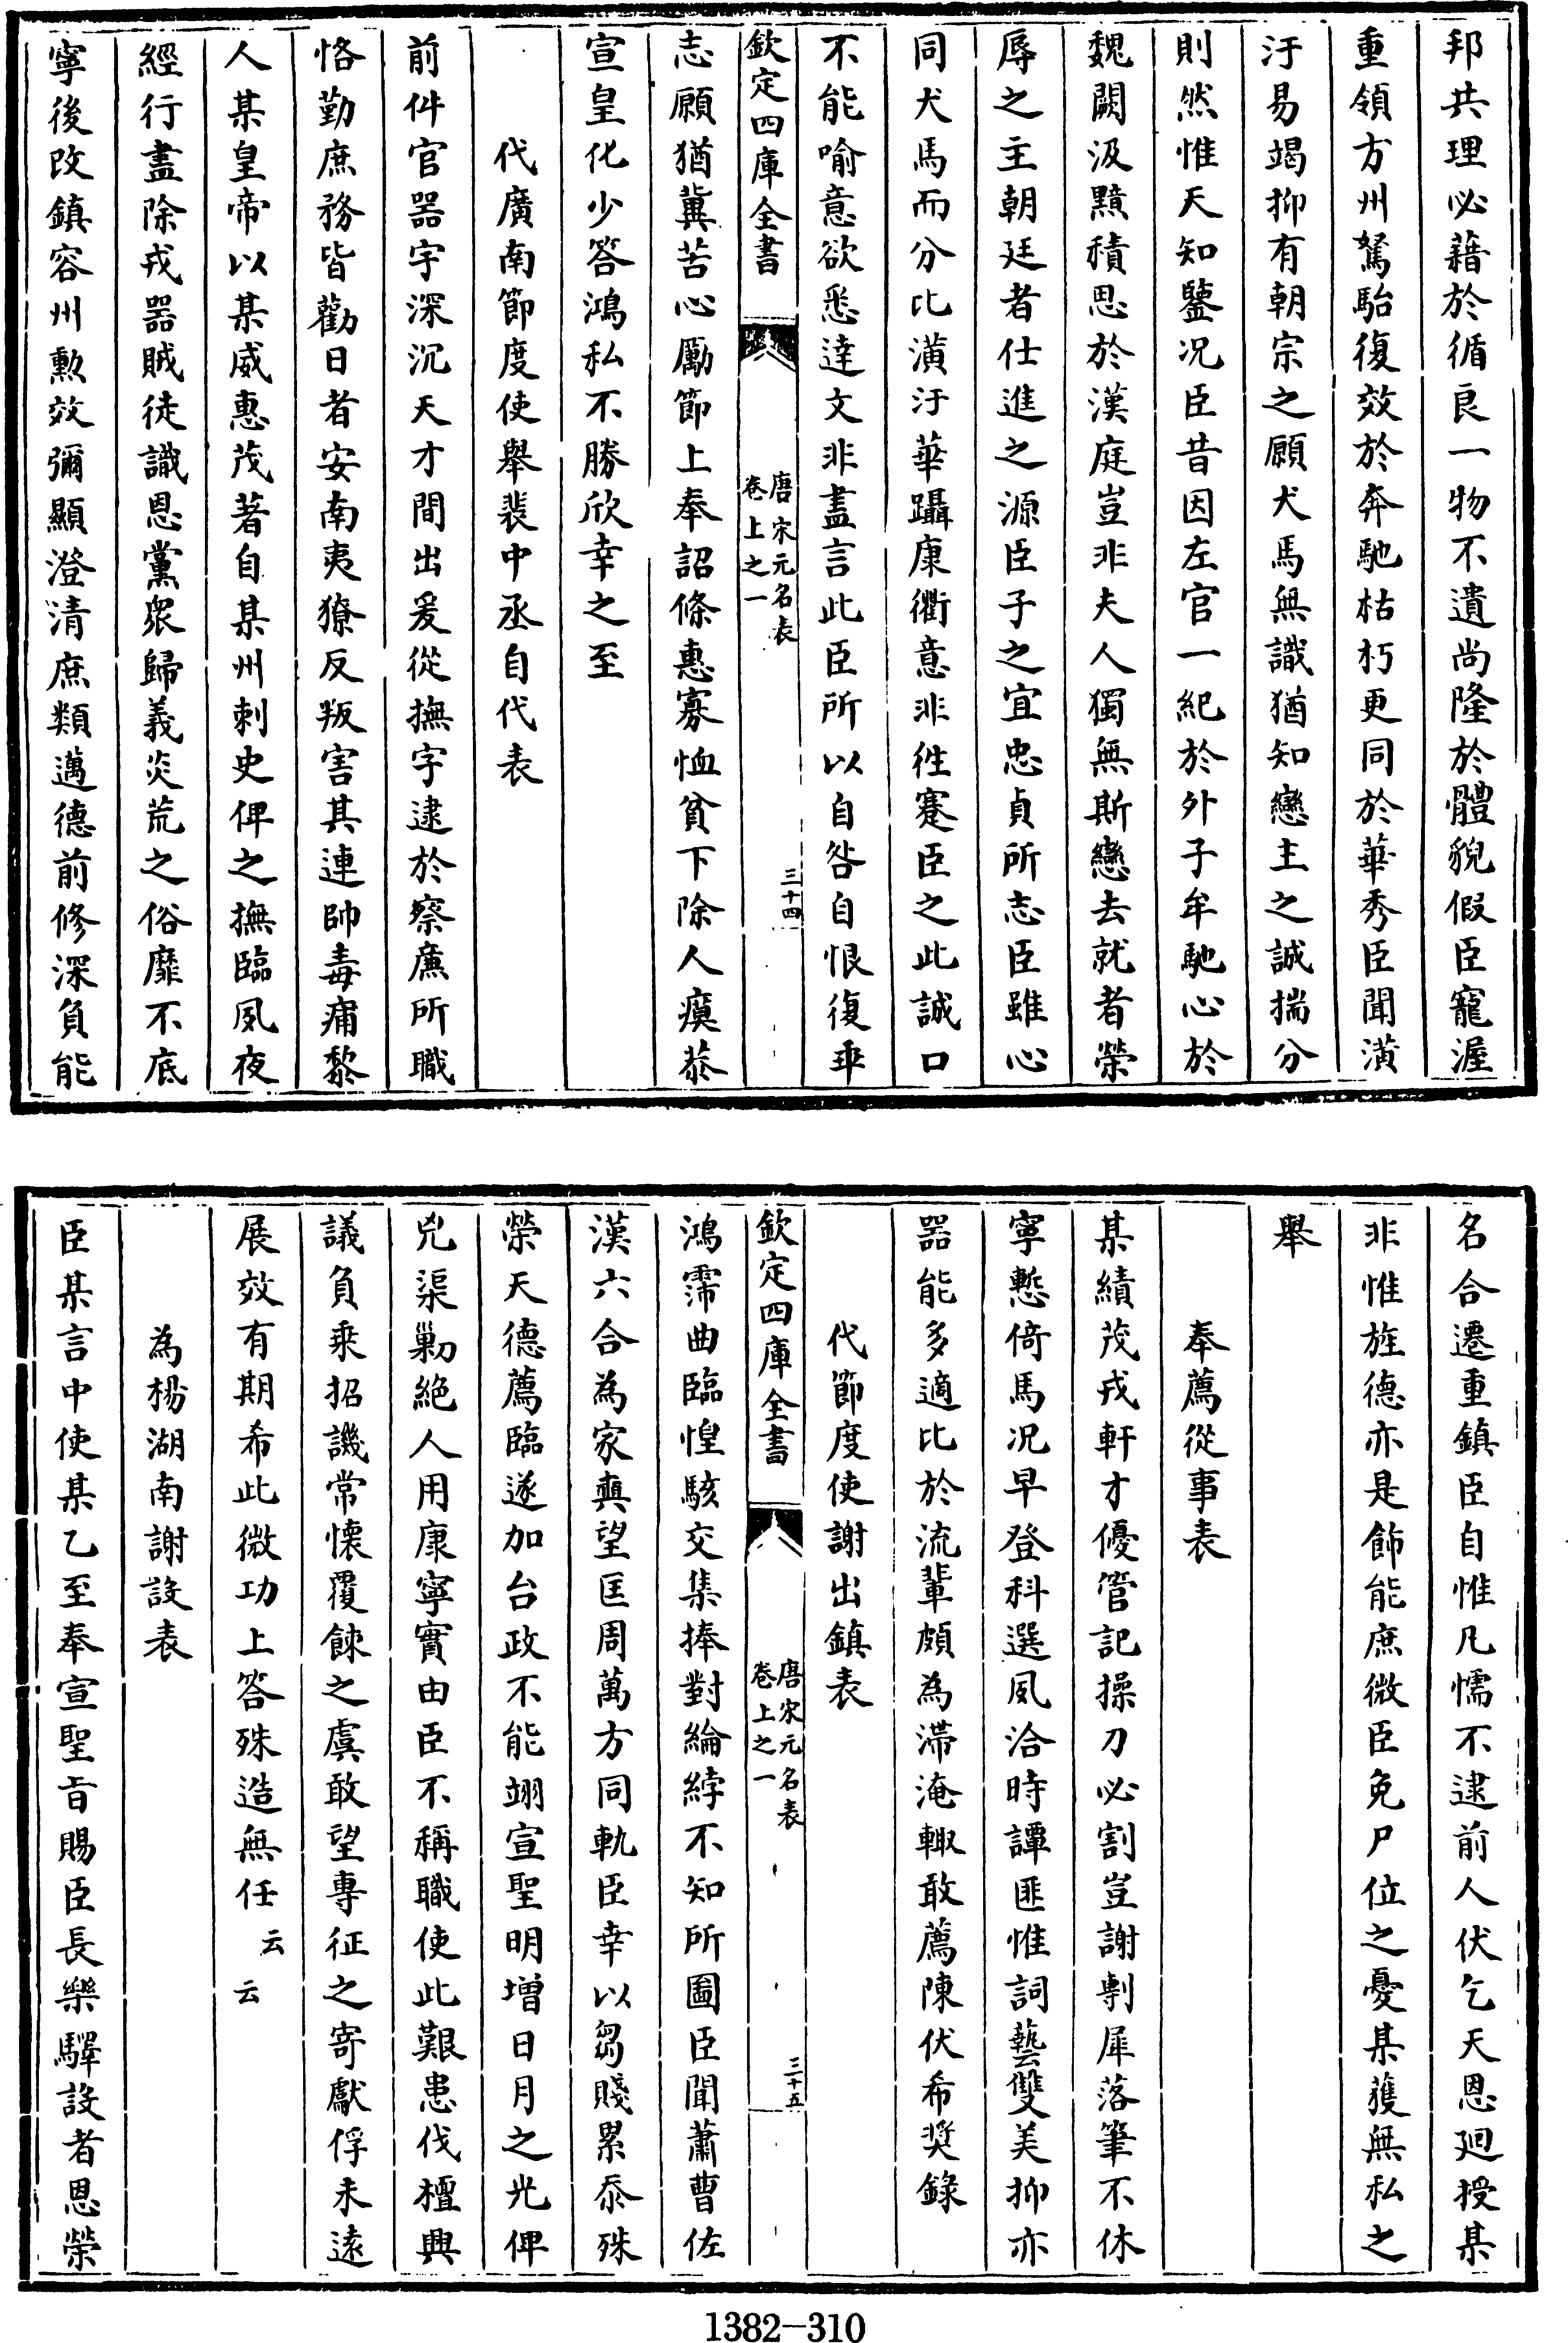 邦共理必藉於循良一物不遺尚隆於體貌假臣寵渥
重領方州駑駘復效於奔馳枯朽更同於華秀臣聞潢
汙易竭抑有朝宗之願犬馬無識猶知戀主之誠揣分
則然惟天知鑒况臣昔因左官一紀於外子牟馳心於
魏闕汲黯積思於漢庭豈非夫人獨無斯戀去就者榮
辱之主朝廷者仕進之源臣子之宜忠貞所志臣雖心
同犬馬而分比潢汙華躡康衢意非徃蹇臣之此誠口
不能喻意欲悉達文非盡言此臣所以自咎自恨復乖
欽定四庫全書
唐宋元名表
卷上之一
三十四
志願猶冀苦心勵節上奉詔條惠寡恤貧下除人瘼恭
宣皇化少答鴻私不勝欣幸之至
代廣南節度使舉裴中丞自代表
前件官器宇深沉天才間出爰從撫字逮於察廉所職
恪勤庶務皆勸日者安南夷獠反叛害其連帥毒痡黎
人某皇帝以某威惠茂著自某州刺史俾之撫臨夙夜
經行盡除戎器賊徒識恩黨衆歸義炎荒之俗靡不底
寧後改鎮容州勲效彌顯澄清庶類邁德前修深負能
名合遷重鎮臣自惟凡懦不逮前人伏乞天恩廻授某
非惟旌德亦是飾能庶微臣免尸位之憂某獲無私之
舉
奉薦從事表
某績茂戎軒才優管記操刀必割豈謝剸犀落筆不休
寧慙倚馬况早登科選夙洽時譚匪惟詞藝雙美抑亦
器能多適比於流輩頗為滯淹輙敢薦陳伏希奨錄
代節度使謝出鎮表
欽定四庫全書
唐宋元名表
卷上之一
三十五
鴻霈曲臨惶駭交集捧對綸綍不知所圖臣聞蕭曹佐
漢六合為家奭望匡周萬方同軌臣幸以芻賤累忝殊
榮天德薦臨遂加台政不能翊宣聖明增日月之光俾
兇渠勦絶人用康寧實由臣不稱職使此艱患伐檀興
議負乘招譏常懷覆餗之虞敢望專征之寄獻俘未遠
展效有期希此微功上答殊造無任云云
為楊湖南謝設表
臣某言中使某乙至奉宣聖旨賜臣長樂驛設者恩榮
1382-310